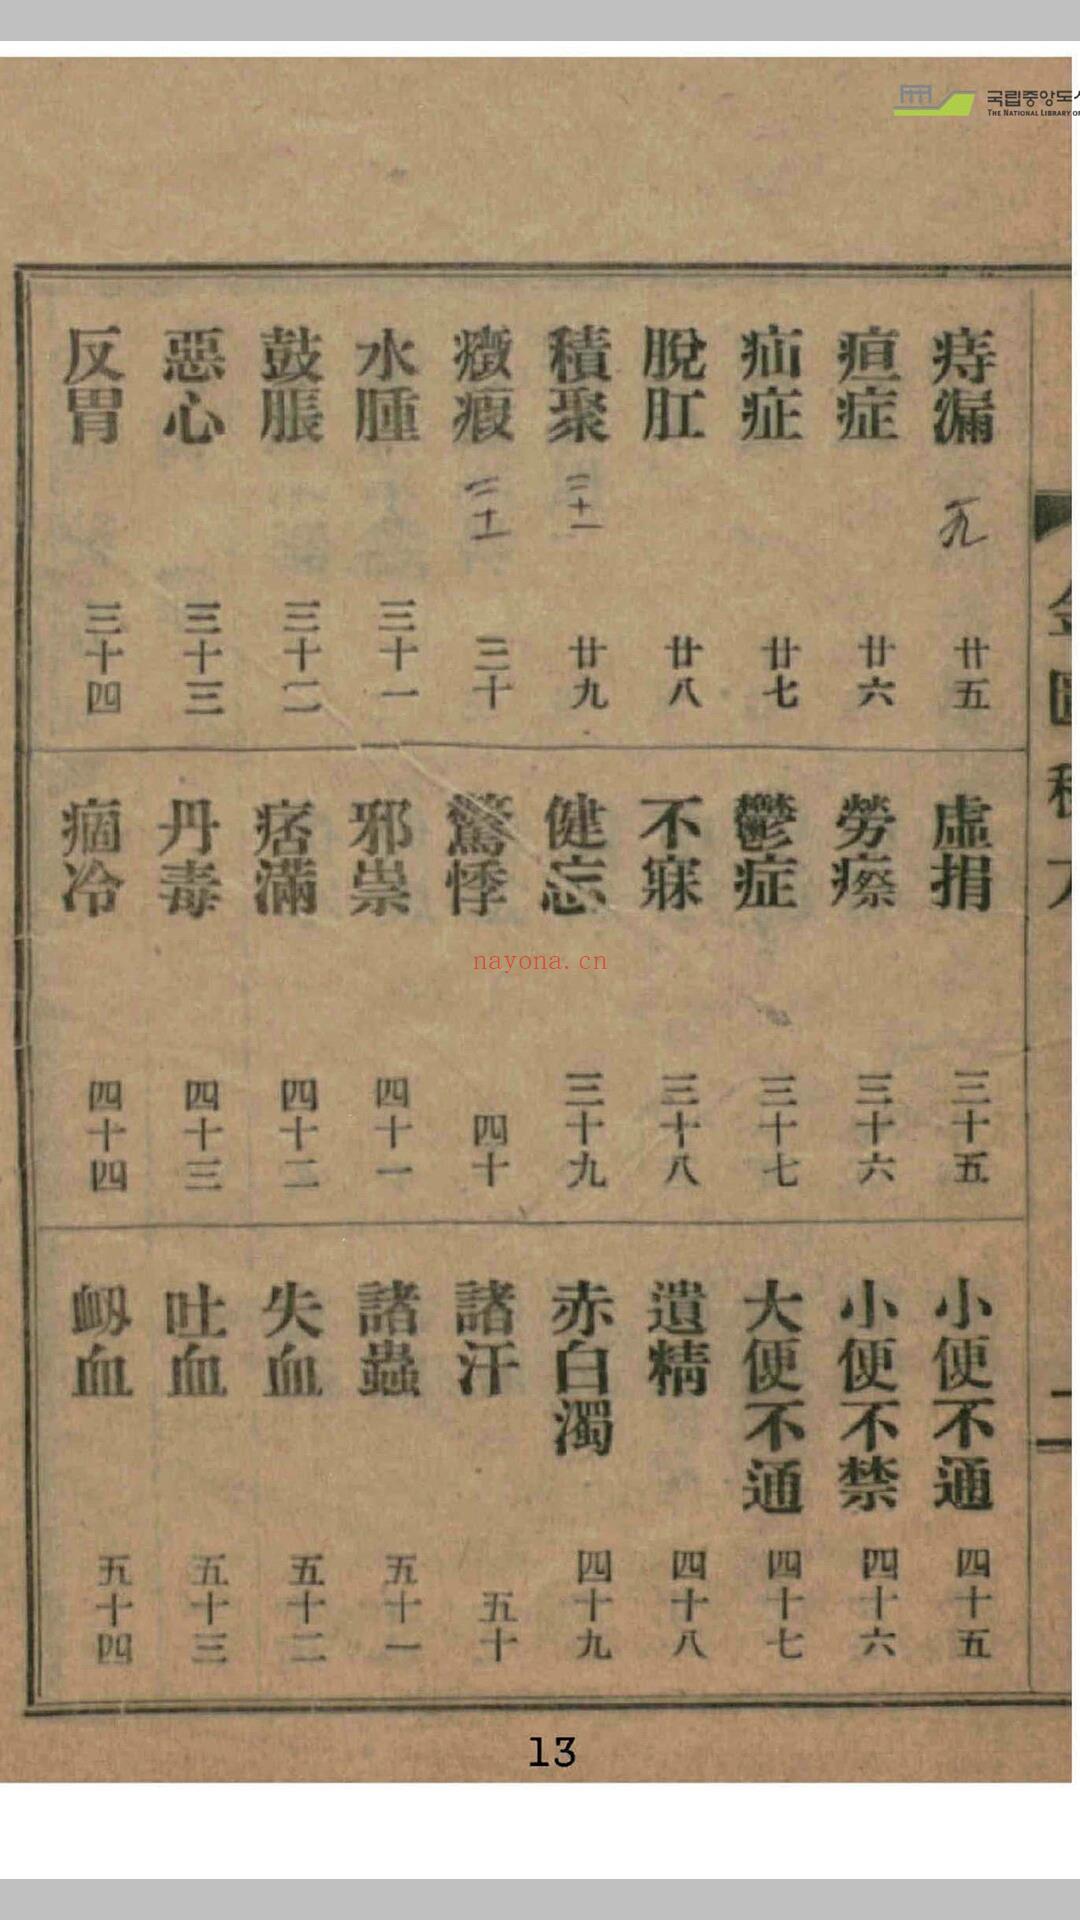 국립중앙도
THE NATIONAL LIBRARY OF
痔漏 廿五
疸症 廿六
疝症 廿七
脫肛 廿八
積聚 三十一 廿九
癥瘕 三十一 三十
水腫 三十一
鼓脹 三十二
惡心 三十三
反胃 三十四
虛損 三十五
勞瘵 三十六
鬱症 三十七
不寐 三十八
健忘 三十九
驚悸 四十
邪祟 四十一
痞滿 四十二
丹毒 四十三
痼冷 四十四
小便不通 四十五
小便不禁 四十六
大便不通 四十七
遺精 四十八
赤白濁 四十九
諸汗 五十
諸蟲 五十一
失血 五十二
吐血 五十三
衂血 五十四
nayona.cn
13